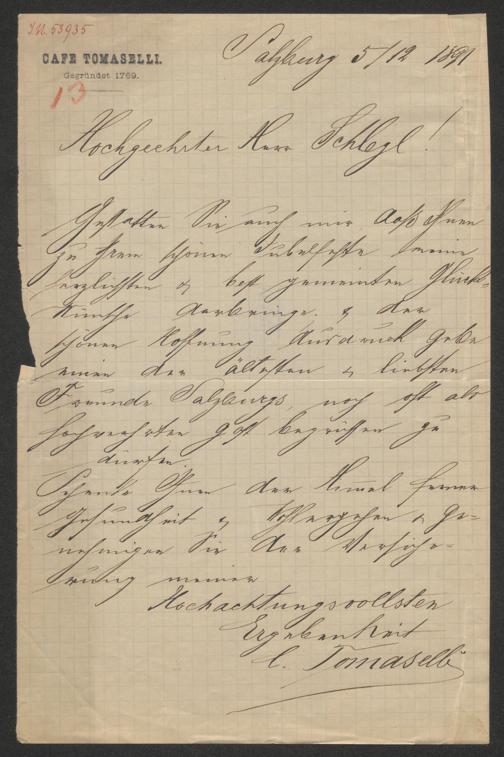 I.N. 53935
CAFE TOMASELLI.
Gegründet 1769.
13
Salzburg 5/12 1891
Hochgeehrter Herr Schlegl!
Gestatten Sie auch mir daß Ihnen
zu Ihrem schönen Jubelfeste meine
herzlichsten & best gemeinten Glück-
wünsche darbringe. & der
schönen Hoffnung Ausdruck gebe
einen der ältesten & liebsten
Freunde Salzburgs, noch oft als
hochverehrten Gast begrüssen zu
dürfen.
Schenke Ihnen der Himmel ferner
Gesundheit & Wohlergehen & ge-
nehmigen Sie die Versiche-
rung meiner
Hochachtungsvollsten
Ergebenheit
C. Tomaselli